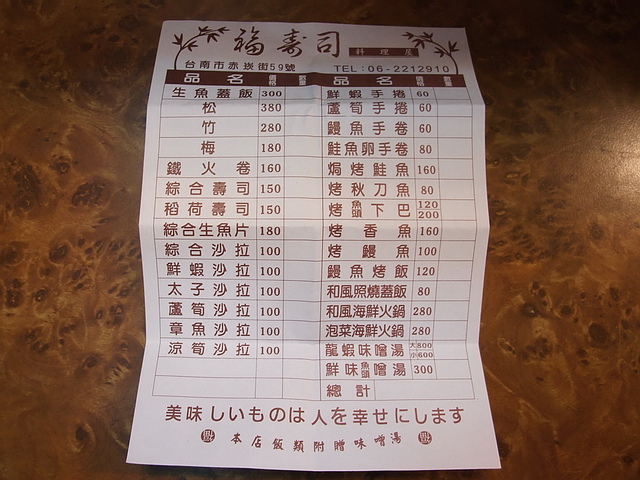 福壽司 料理屋
台南市赤崁街59號 TEL:06-2212910
品名 價格 數量 品名 價格 數量
生魚蓋飯 300 鮮蝦手捲 60
松 380 蘆筍手捲 60
竹 280 鰻魚手卷 60
梅 180 鮭魚卵手卷 80
鐵火卷 160 焗烤鮭魚 160
綜合壽司 150 烤秋刀魚 80
稻荷壽司 150 烤魚頭下巴 120 200
綜合生魚片 180 烤香魚 160
綜合沙拉 100 烤鰻魚 100
鮮蝦沙拉 100 鰻魚烤飯 120
太子沙拉 100 和風照燒蓋飯 80
蘆筍沙拉 100 和風海鮮火鍋 280
章魚沙拉 100 泡菜海鮮火鍋 280
涼筍沙拉 100 龍蝦味噌湯 大800 小600
鮮味魚頭噌湯 300
總計
美味しいものは人を幸せにします
本店飯類附贈味噌湯